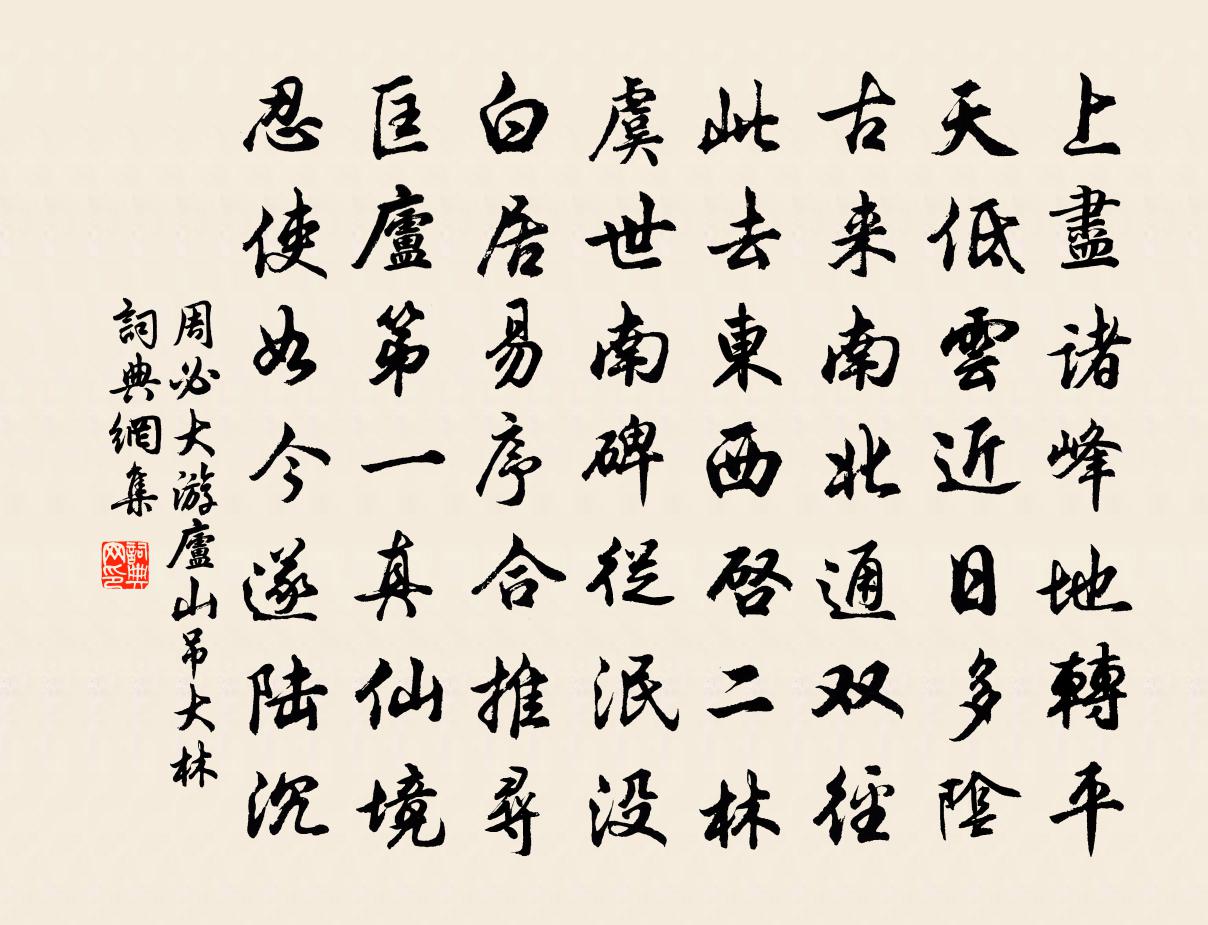 上盡诸峰地轉平
天低雲近日多陰
古来南北通双徑
此去東西啓二林
虞世南碑從泯没
白居易序合推尋
匡廬第一真仙境
忍使如今遂陆沉
周必大游廬山吊大林
詞典網集
詞典网印